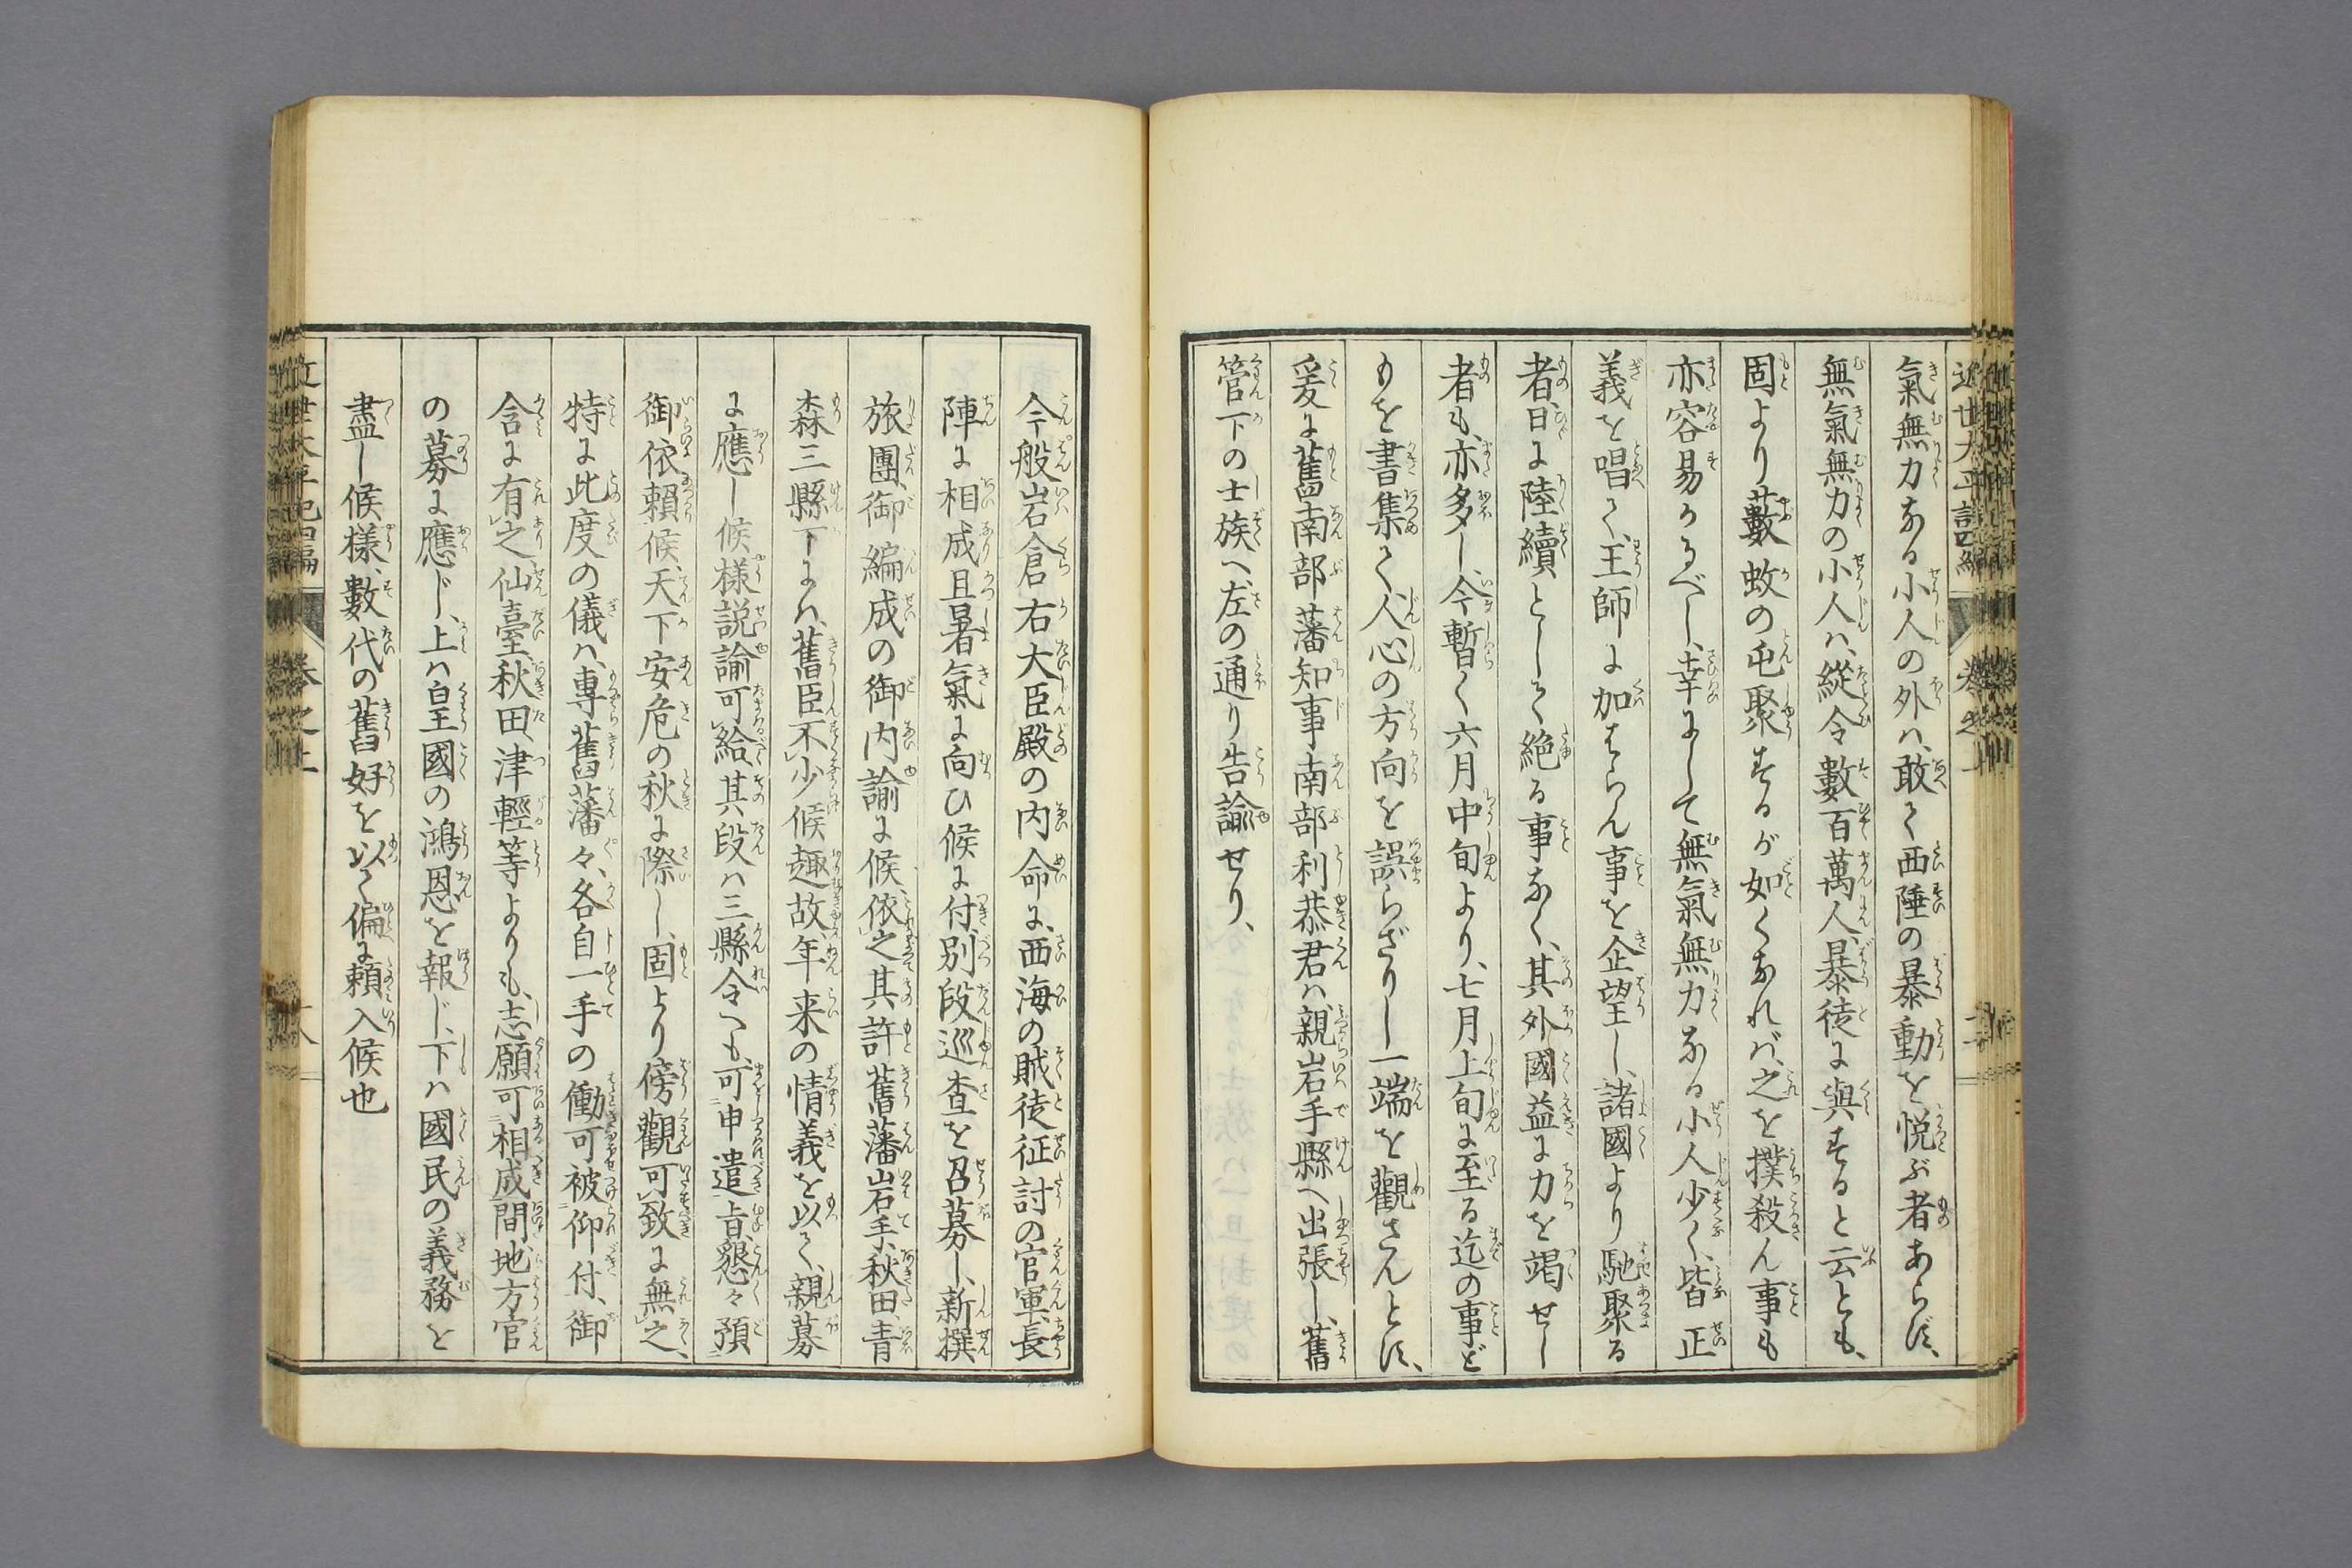 氣無力ある小人の外ハ、敢て西陲の暴動を悦ぶ者あらず、
無氣無力の小人ハ、縱令數百萬人、暴徒に與するど云とも、
固より藪蚊の屯聚するが如くなれバ、之を撲殺ん事も
亦容易かるべし、幸にして無氣無力ある小人少く、皆正
義を唱て、王師に加はらん事を企望し、諸國より馳聚る
者、日に陸續として絶る事なく、其外國益に力を竭せし
者も、亦多し、今暫く六月中旬より、七月上旬に至る迄の事ど
もを書集て、人心の方向を誤らざりし一端を觀さんとす、
爰に舊南部藩知事南部利恭君ハ、親岩手縣へ出張し、舊
管下の士族へ左の通り告諭せり、
今般岩倉右大臣殿の内命に、西海の賊徒征討の官軍、長
陣に相成且暑氣に向ひ候に付、別段巡査を召募し、新撰
旅團、御編成の御内諭に候、依之其許舊藩岩手、秋田、青
森三縣下にハ、舊臣不少候趣故、年来の情義を以て、親募
に應し候様説諭可給、其段ハ三縣令へも、可申遣旨、懇々預
御依頼候、天下安危の秋に際し、固より傍觀可致に無之、
特に此度の儀ハ、専舊藩々、各自一手の働可被仰付、御
含に有之、仙臺、秋田、津輕等よりも、志願可相成間、地方官
の募に應じ、上ハ皇國の鴻恩を報じ、下ハ國民の義務を
盡し候様、數代の舊好を以て偏に頼入候也